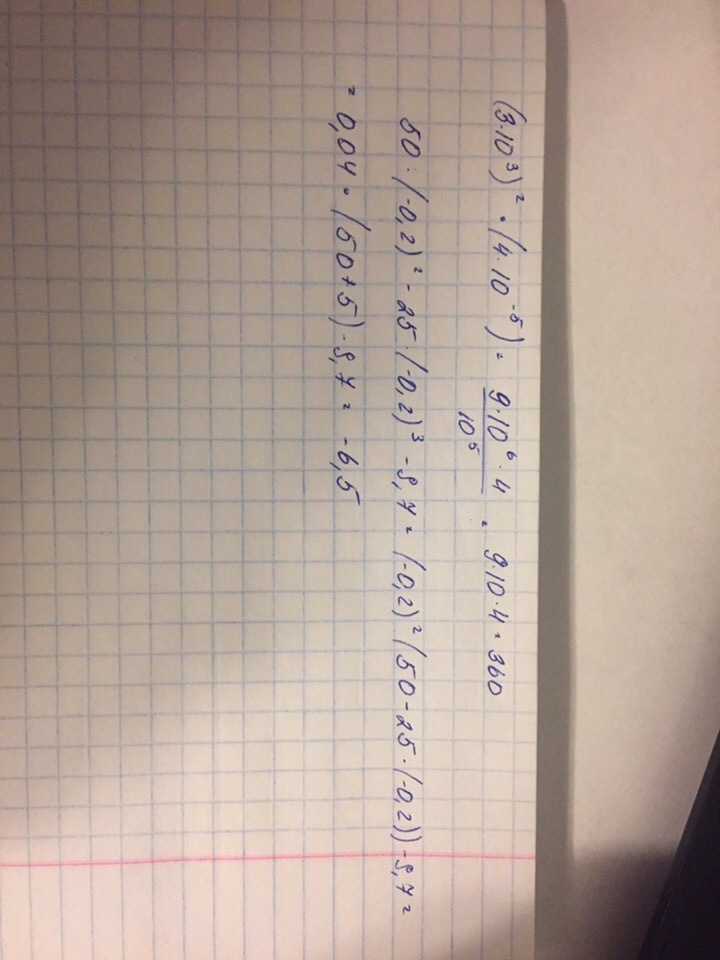 (3·10³)² · (4·10⁻⁵) = 9·10⁶·4 / 10⁵ = 9·10·4 = 360
50·(-0,2)² - 25·(-0,2)³ - 8,7 = (-0,2)² (50 - 25·(-0,2)) - 8,7 =
= 0,04 · (50+5) - 8,7 = -6,5